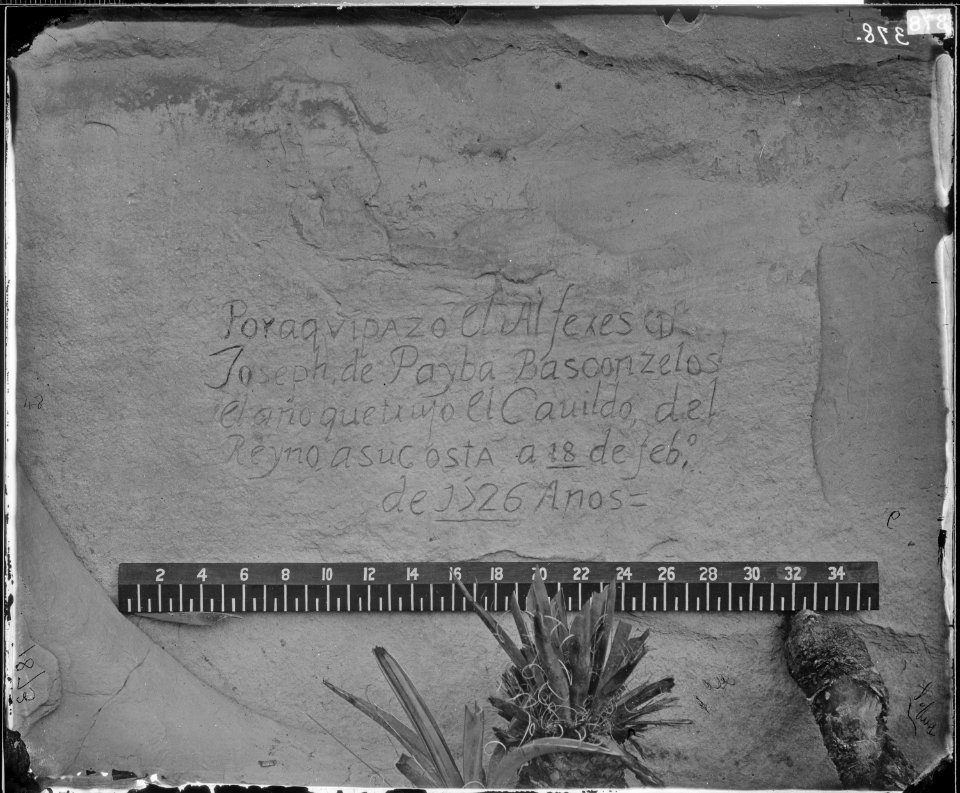 378
378.
Por aqui pazo el Alferes Dn
Joseph, de Payba Basconzelos
el año que trujo el Cauildo, del
Reyno a su costa a 18 de feb,o
de 1526 Años=
2 4 6 8 10 12 14 16 18 20 22 24 26 28 30 32 34
1873
9